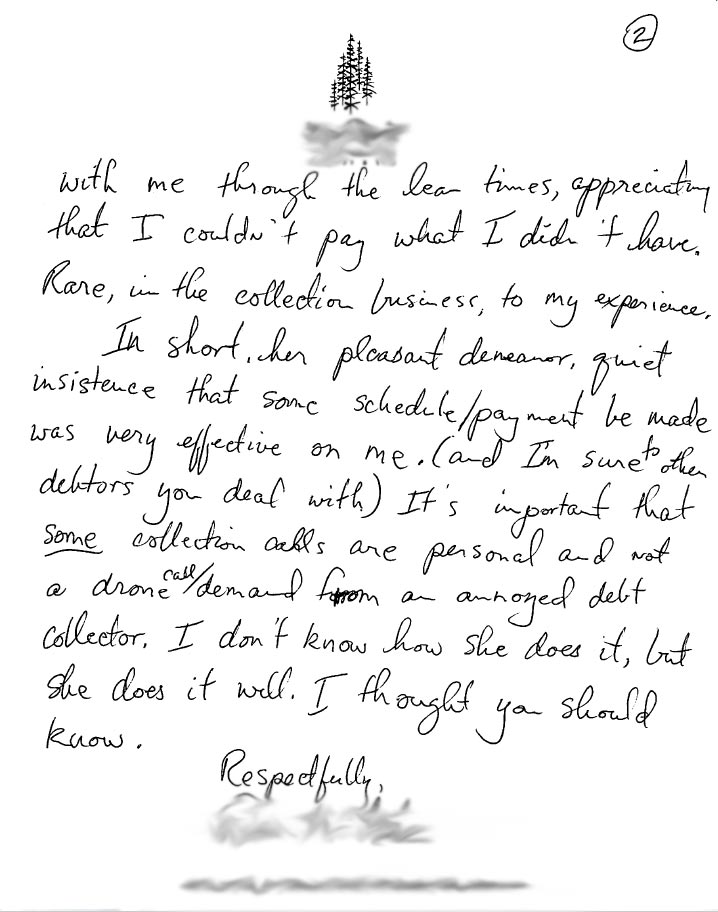 2
with me through the lean times, appreciating
that I couldn't pay what I didn't have.
Rare, in the collection business, to my experience.
In short, her pleasant demeanor, quiet
insistence that some schedule/payment be made
was very effective on me. (and I'm sure to other
debtors you deal with) It's important that
some collection calls are personal and not
a drone call/demand from an annoyed debt
collector. I don't know how she does it, but
she does it well. I thought you should
know.
Respectfully,